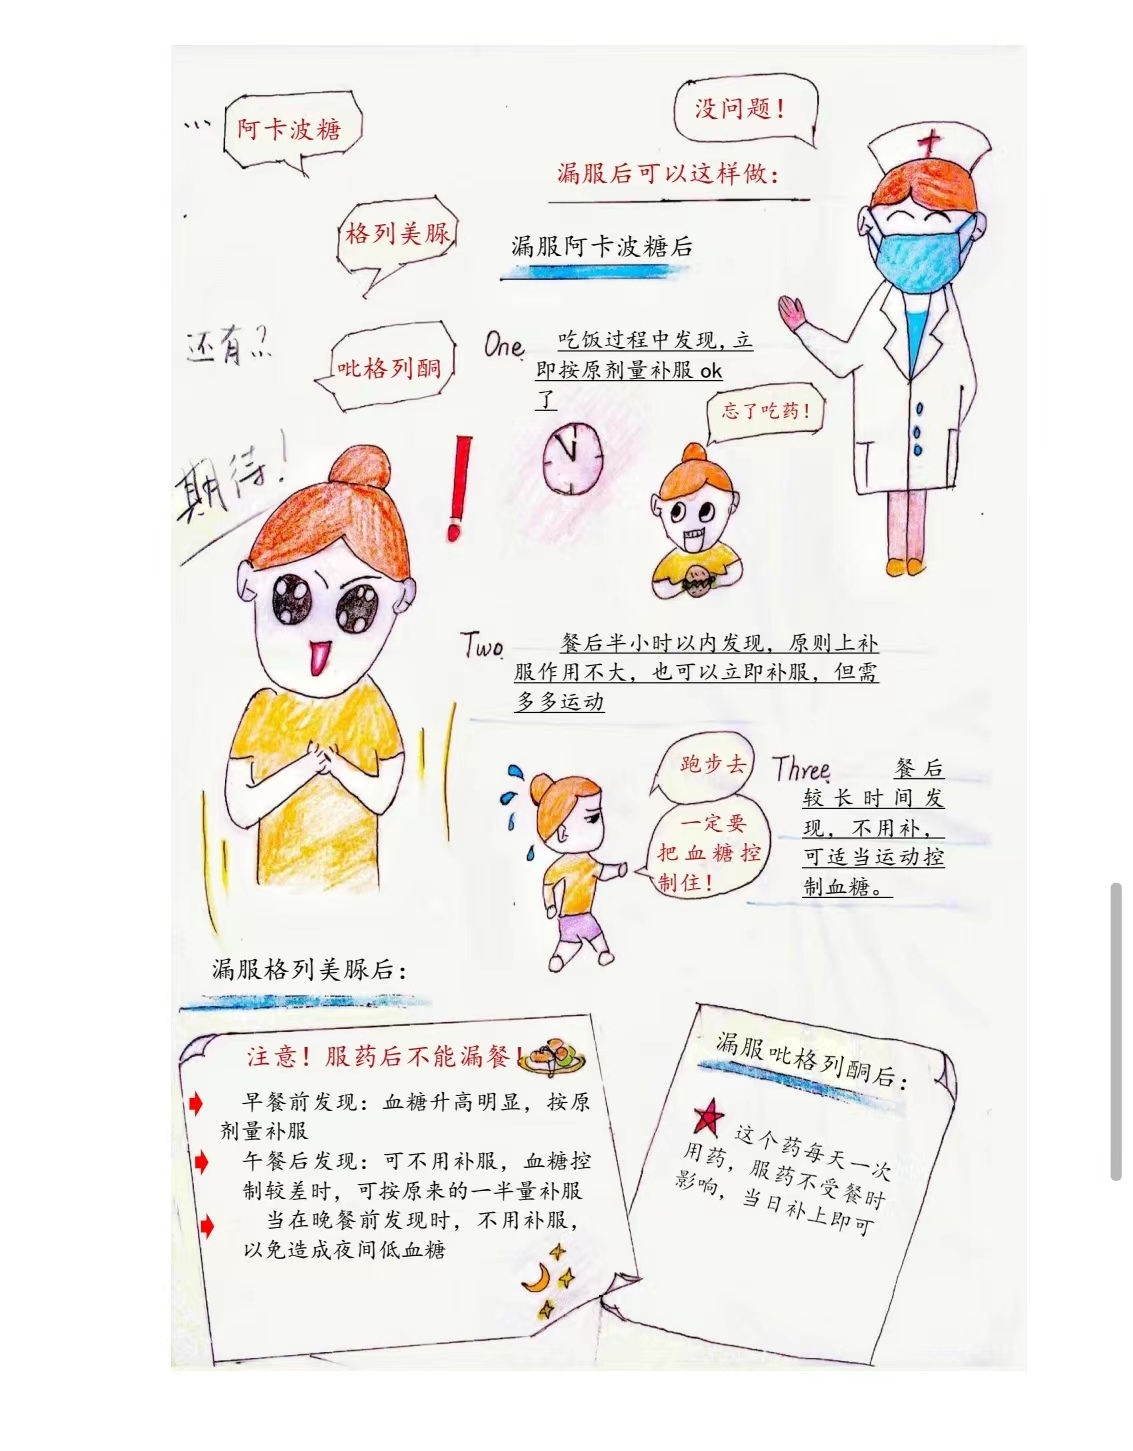 阿卡波糖
没问题！
漏服后可以这样做：
格列美脲
漏服阿卡波糖后
还有？
吡格列酮
One
吃饭过程中发现，立
即按原剂量补服 ok
了
忘了吃药！
期待！
Two
餐后半小时以内发现，原则上补
服作用不大，也可以立即补服，但需
多多运动
跑步去
一定要
把血糖控
制住！
Three
餐后
较长时间发
现，不用补，
可适当运动控
制血糖。
漏服格列美脲后：
注意！服药后不能漏餐！
早餐前发现：血糖升高明显，按原
剂量补服
午餐后发现：可不用补服，血糖控
制较差时，可按原来的一半量补服
当在晚餐前发现时，不用补服，
以免造成夜间低血糖
漏服吡格列酮后：
这个药每天一次
用药，服药不受餐时
影响，当日补上即可